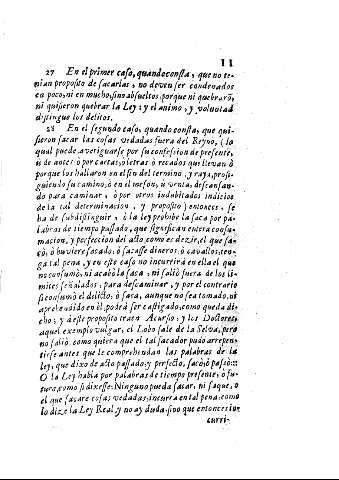 11
27 En el primer caso, quando consta, que no te-
nian proposito de sacarlas, no deven ser condenados
en poco, ni en mucho, sino absueltos, porque ni quebrarõ,
ni quisieron quebrar la Ley: y el animo, y voluntad
distingue los delitos.
28 En el segundo caso, quando consta, que qui-
sieron sacar las cosas vedadas fuera del Reyno, (lo
qual puede averiguarse por su confession de presente,
ù de antes: ò por cartas, ò letras ò recados que llevan ò
porque los hallaron en el fin del termino, y raya, prosi-
guiendo su camino, ò en el meson, ù venta, descansan-
do para caminar, ò por otros indubitados indicios
de la tal determinacion, y proposito) entonces, se
ha de subdistinguir, ò la ley prohibe la saca por pa-
labras de tiempo passado, que significan entera consu-
macion, y perfeccion del acto, como es dezir, el que sa-
cò, ò huviere sacado, ò sacasse dineros, ò cavallos, ten-
ga tal pena, y en este caso no incurrirá en ella el que
no consumò, ni acabò la saca, ni saliò fuera de los li-
mites señalados, para descaminar, y por el contrario
si consumò el delicto, ò saca, aunque no sea tomado, ni
aprehendido en èl, podrá ser castigado, como queda di-
cho; y deste proposito traen Acursio, y los Doctores,
aquel exemplo vulgar, el Lobo sale de la Selva, pero
no saliò, como quiera que el tal sacador pudo arrepen-
tirse antes que le comprehendan las palabras de la
ley, que dixo de acto passado, y perfecto, sacò, ò passò:
O la Ley habla por palabras de tiempo presente, ò fu-
turo, como si dixesse: Ninguno pueda sacar, ni saque, o
el que sacare cosas vedadas, incurra en tal pena, como
lo dize la Ley Real, y no ay duda, sino que entonces in-
curri-